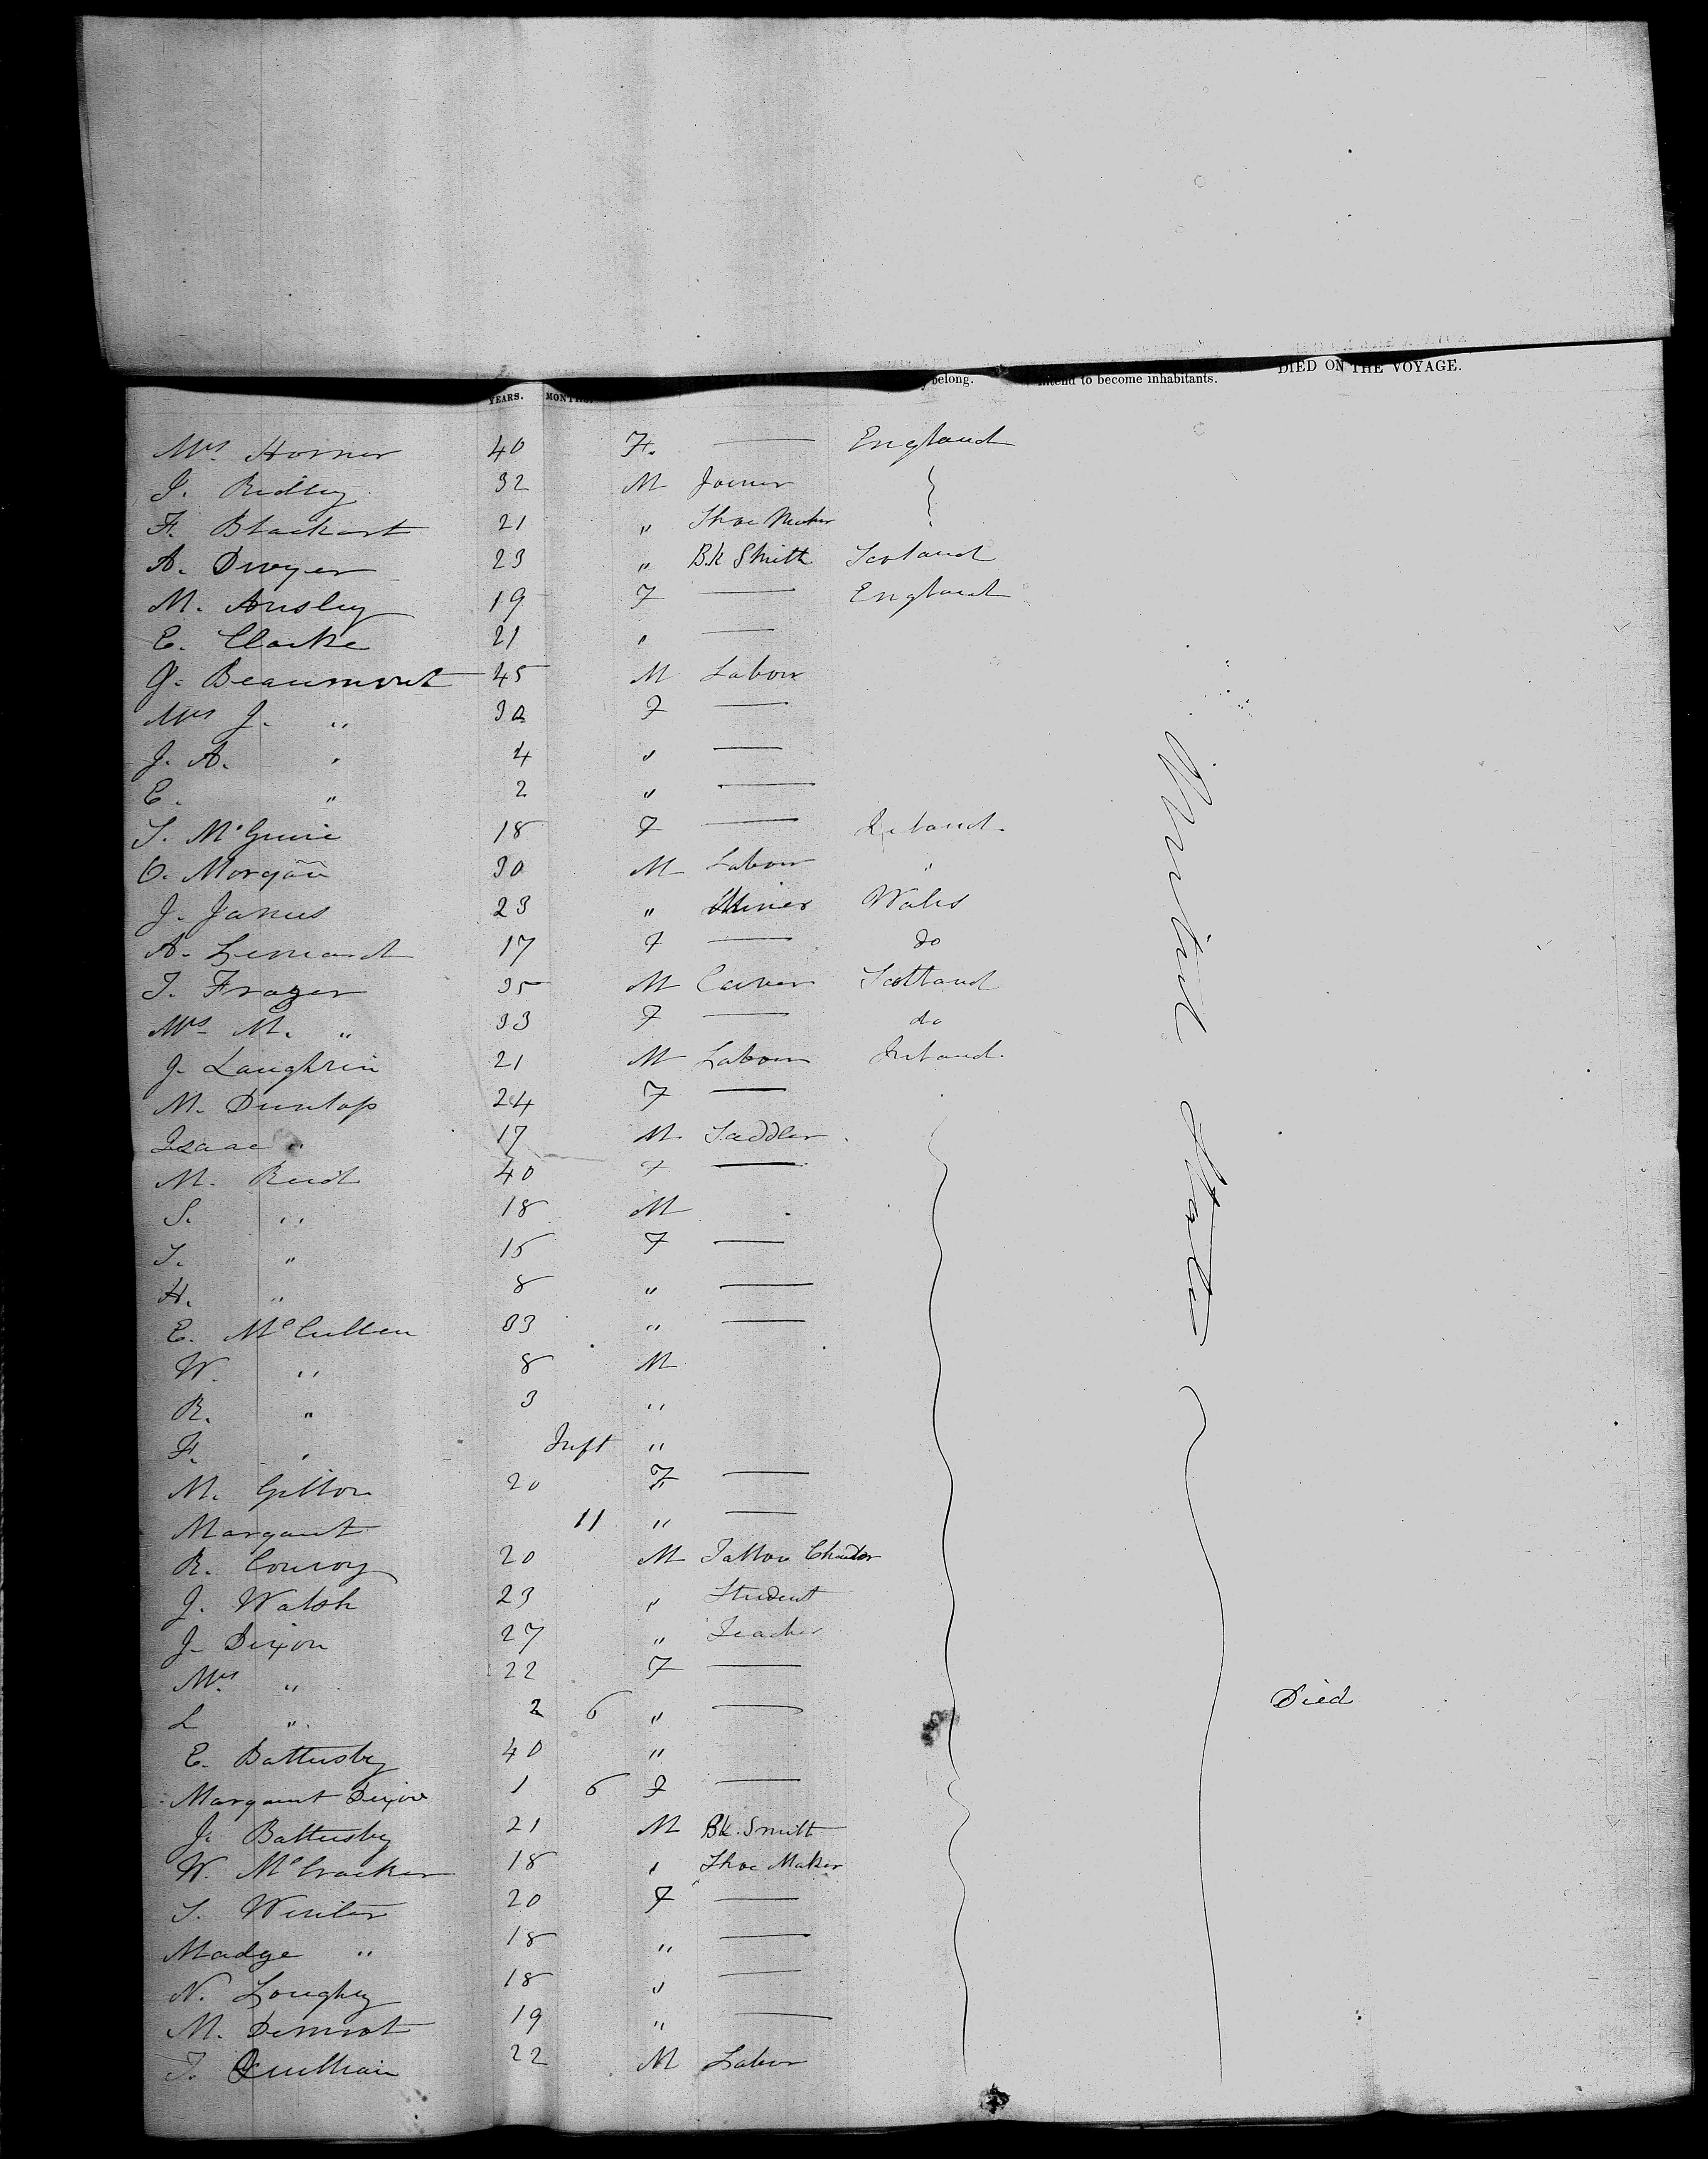 belong. intend to become inhabitants. DIED ON THE VOYAGE.
YEARS. MONTHS.
Mrs. Horner 40 F. — England
J. Ridley 32 M Joiner
F. Blackart 21 " Shoe Maker
A. Dwyer 23 " Bk Smith Scotland
M. Ansley 19 F — England
E. Clarke 21 " —
G. Beaumont 45 M Labour
Mrs J. " 30 F —
J. A. " 4 " —
E. " 2 " —
S. McGuire 18 F — Ireland.
O. Morgan 30 M Labour "
J. James 23 " Miner Wales
A. Lennard 17 F — do
T. Frazer 35 M Carver Scotland
Mrs M. " 33 F — do
J. Laughrin 21 M Labour Ireland.
M. Dunlap 24 F —
Isaac " 17 M. Saddler
M. Reid 40 F —
S. " 18 M
T. " 15 F —
H. " 8 " —
E. McCullen 33 " —
W. " 8 M
R. " 3 "
F. " Inft "
M. Gillon 20 F —
Margaret 11 " —
R. Conroy 20 M Tallow Chandler
J. Walsh 23 " Student
J. Dixon 27 " Teacher
Mrs. " 22 F —
L " 2 6 " — Died
E. Battersby 40 "
Margaret Dixon 1 6 F —
J. Battersby 21 M Bk. Smith
W. McCracken 18 " Shoe Maker
S. Winter 20 F —
Madge " 18 " —
N. Loughey 18 " —
M. Dermot 19 " —
T. 22 M Labor
United States